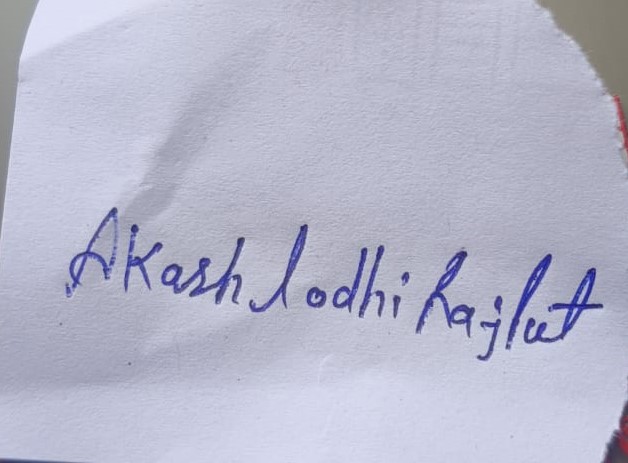 Akash lodhi Rajput